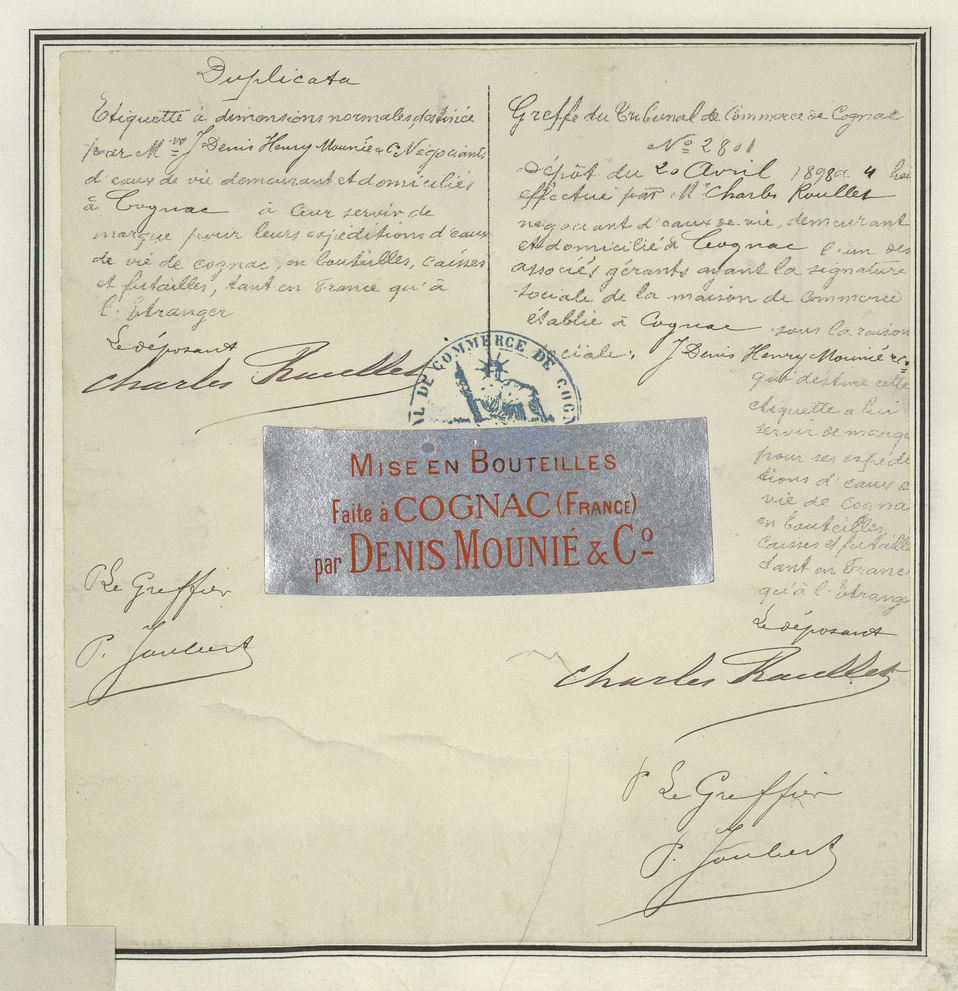 Duplicata
Etiquette à dimensions normales, destinée
par M.rs J Denis Henry Mounié & Co Négociants
d'eaux de vie demeurant et domiciliés
à Cognac à leur servir de
marque pour leurs expéditions d'eaux
de vie de cognac, en bouteilles, caisses
et futailles, tant en France qu'à
l'Etranger
Le déposant
Charles Roullet
Greffe du Tribunal de Commerce de Cognac
No 2801
Dépôt du 20 Avril 1898 à 4
effectué par Mr Charles Roullet
négociant d'eaux de vie, demeurant
et domicilié à Cognac l'un des
associés gérants ayant la signature
sociale de la maison de Commerce
établie à Cognac sous la raison
sociale: J Denis Henry Mounié & Co
qui destine cette
étiquette à lui
servir de marqu
pour ses expédi
tions d'eaux d
vie de Cogna
en bouteilles
caisses et futaill
tant en Franc
qu'à l'Etrang
Le déposant
Charles Roullet
AL DE COMMERCE DE COGN
MISE EN BOUTEILLES
Faite à COGNAC (FRANCE)
par DENIS MOUNIÉ & Co
P Le Greffier
P. Joubert
P Le Greffier
P. Joubert